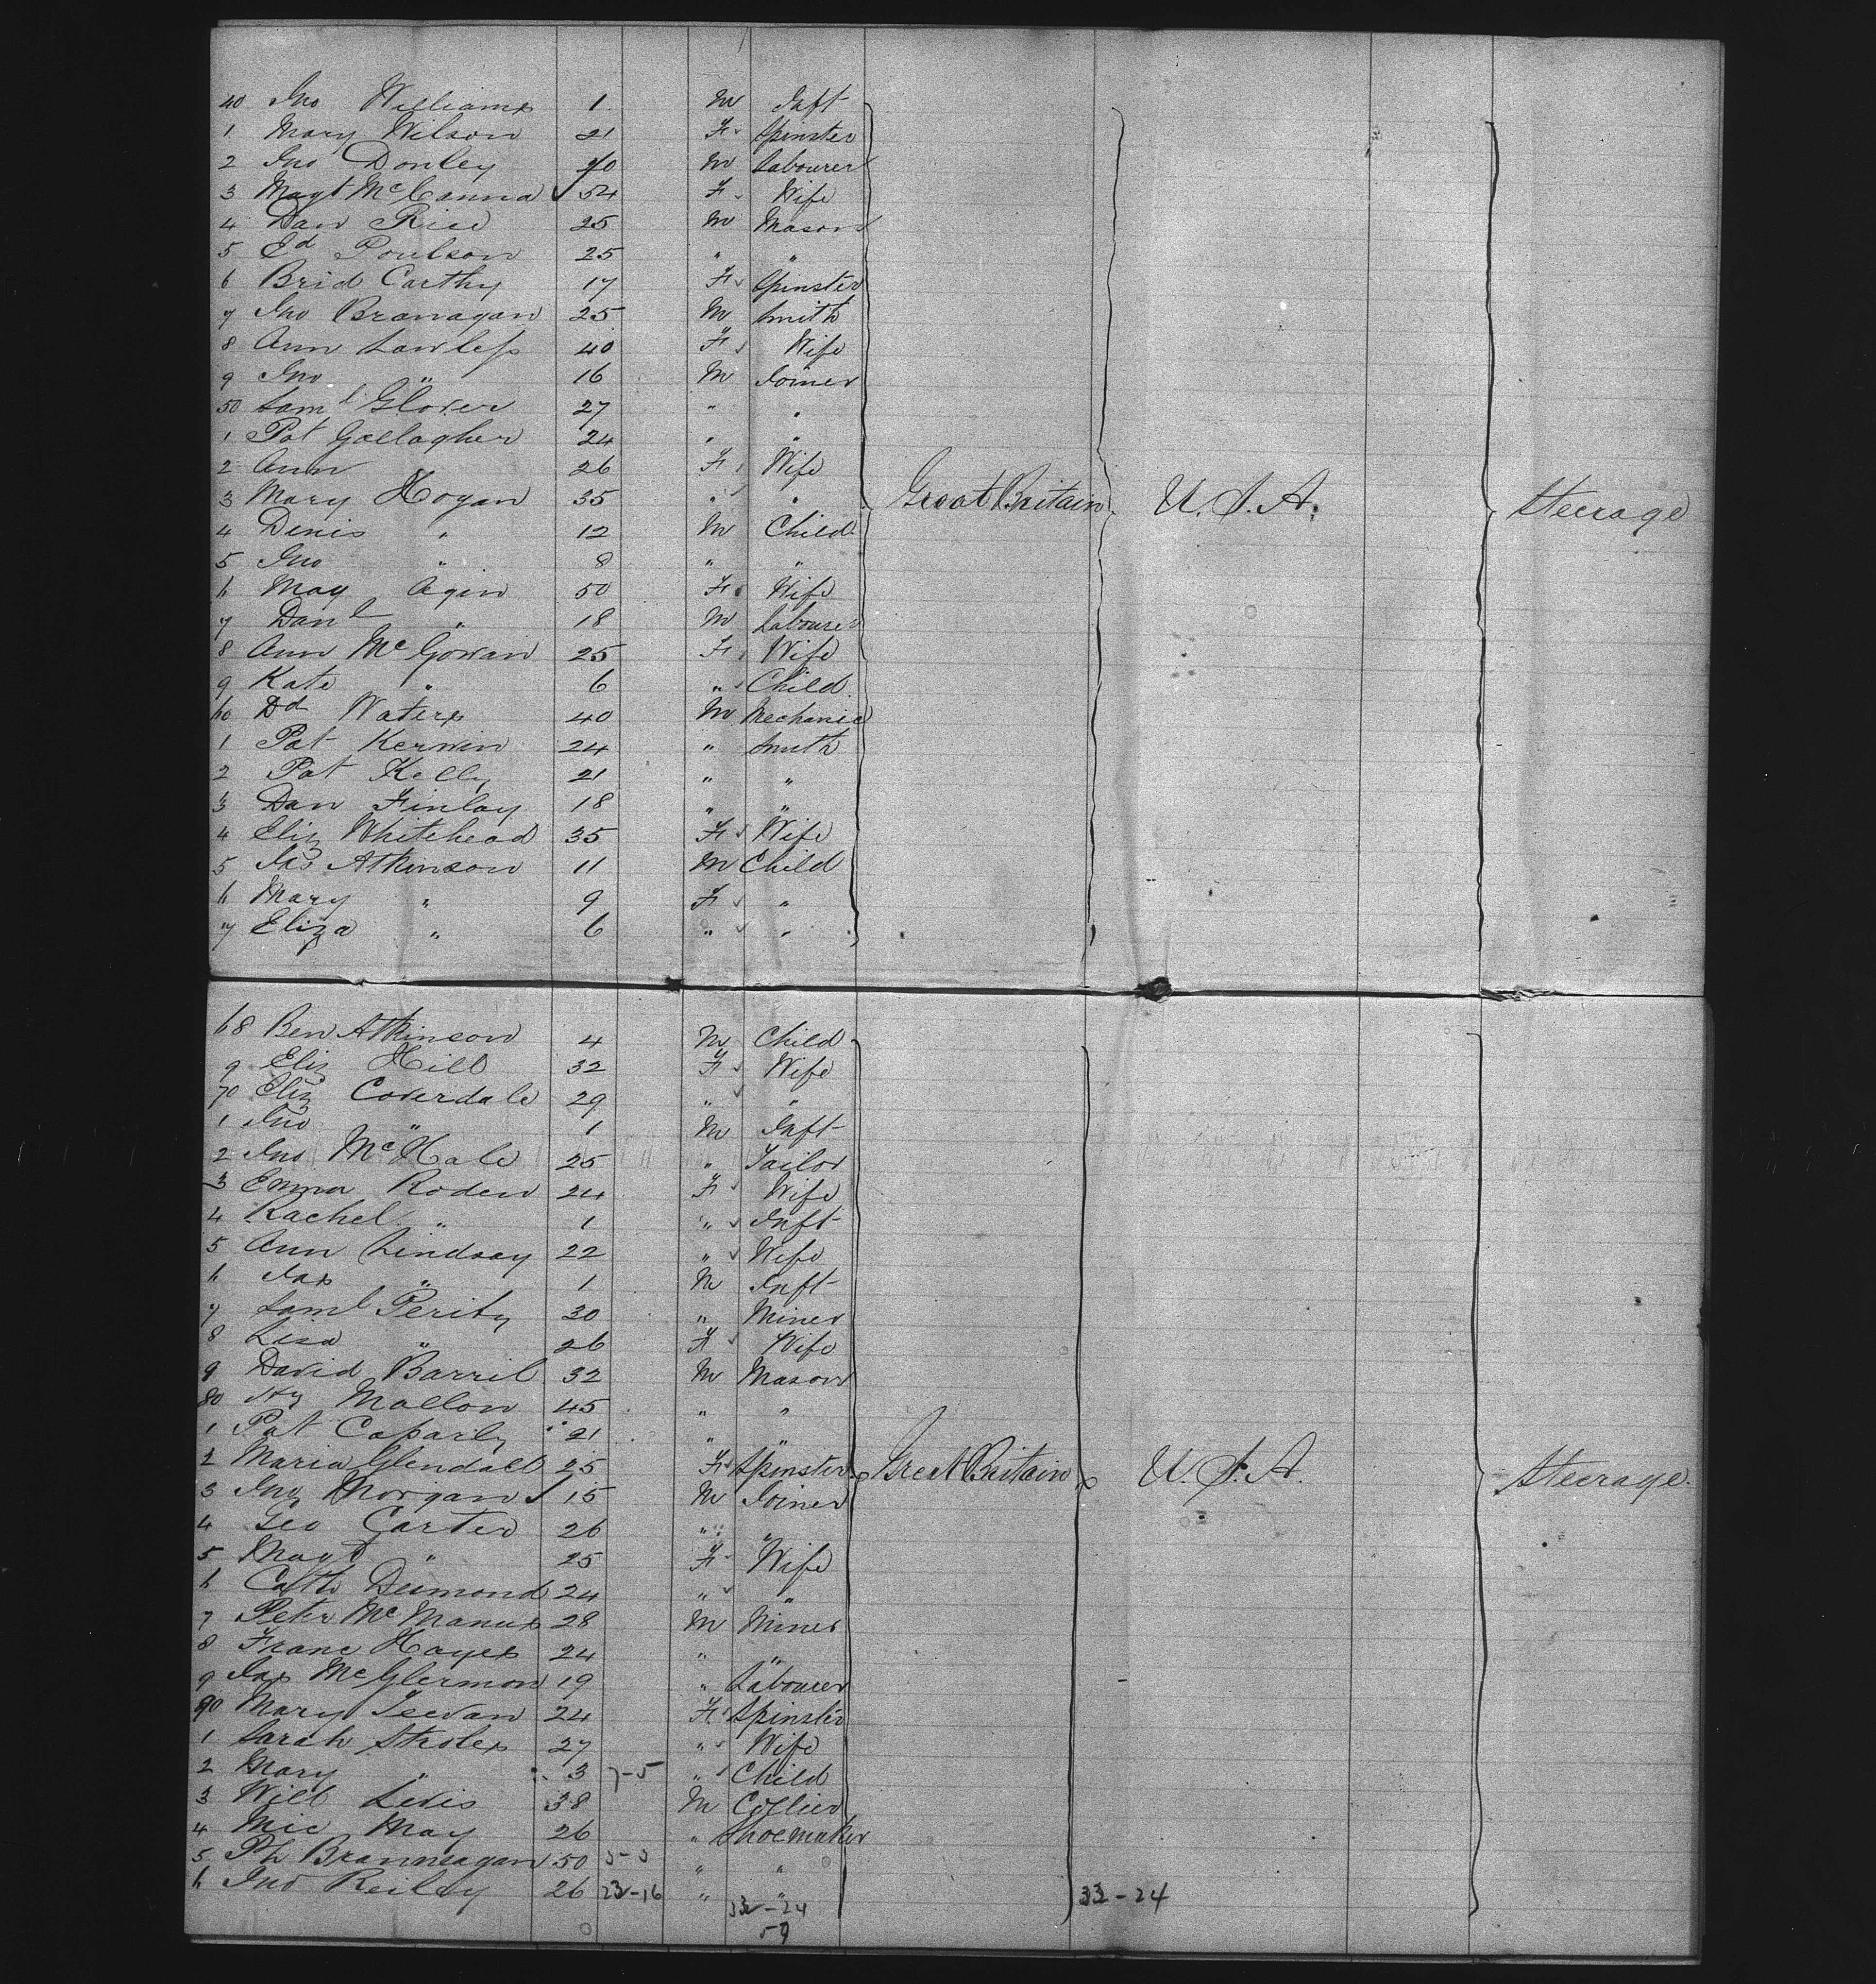 40 Jno Williams 1 M Inft
1 Mary Wilson 21 F Spinster
2 Jno Donley 20 M Labourer
3 Magt McCanna 54 F Wife
4 Dan Rice 25 M Mason
5 Ed Poulson 25 " "
6 Brid Carthy 17 F Spinster
7 Jno Branagan 25 M Smith
8 Ann Lawless 40 F Wife
9 Jno " 16 M Joiner
50 Saml Glover 27 " "
1 Pat Gallagher 24 " "
2 Ann 26 F Wife
3 Mary Hogan 35 " " Great Britain U.S.A. Steerage
4 Denis " 12 M Child
5 Jno " 8 " "
6 May Agin 50 F Wife
7 Danl " 18 M Labourer
8 Ann McGowan 25 F Wife
9 Kate " 6 " Child
60 Dd Waters 40 M Mechanic
1 Pat Kerwin 24 " Smith
2 Pat Kelly 21 " "
3 Dan Finlay 18 " "
4 Eliz Whitehead 35 F Wife
5 Jas Atkinson 11 M Child
6 Mary " 9 F "
7 Eliza " 6 " "
68 Ben Atkinson 4 M Child
9 Eliz Hill 32 F Wife
70 Eliz Coverdale 29 " "
1 Jno " 1 M Inft
2 Jno McHale 25 " Tailor
3 Emma Roden 24 F Wife
4 Rachel " 1 " Inft
5 Ann Lindsay 22 " Wife
6 Jas " 1 M Inft
7 Saml Perity 30 " Miner
8 Liza " 26 F Wife
9 David Barril 32 M Mason
80 Hy Mallon 45 " "
1 Pat Caparly 21 " "
2 Maria Glendall 25 F Spinster Great Britain U.S.A. Steerage
3 Jno Morgan 15 M Joiner
4 Geo Carter 26 " "
5 Magt " 25 F Wife
6 Cath Desmond 24 " "
7 Peter McManus 28 M Miner
8 Franc Hayes 24 " "
9 Jas McGlermon 19 " Labourer
90 Mary Teevan 24 F Spinster
1 Sarah Stroles 27 " Wife
2 Mary " 3 7-5 " Child
3 Will Levis 38 M Collier
4 Mic May 26 " Shoemaker
5 Ph Branneagan 50 5-3 " "
6 Jno Reiley 26 23-16 " "
33-24 33-24
59